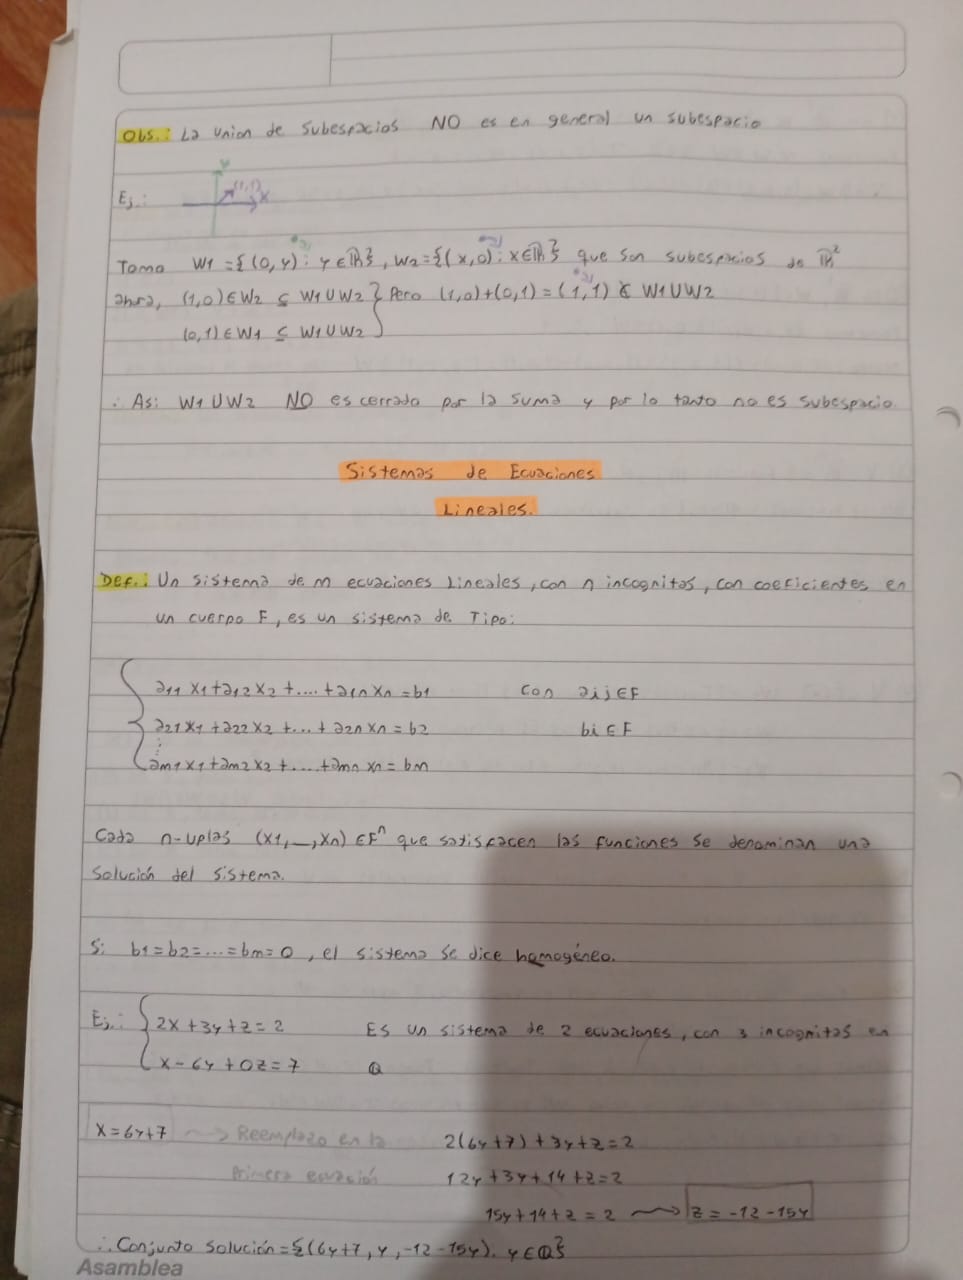 Obs.: La union de subespacios NO es en general un subespacio
Ej.: y (1,1) x
Tomo W1 = {(0,y) : y ∈ ℝ}, W2 = {(x,0) : x ∈ ℝ} que son subespacios de ℝ²
ahora, (1,0) ∈ W2 ⊆ W1 ∪ W2 } Pero (1,0)+(0,1) = (1,1) ∉ W1 ∪ W2
(0,1) ∈ W1 ⊆ W1 ∪ W2
∴ Asi W1 ∪ W2 NO es cerrado por la suma y por lo tanto no es subespacio.
Sistemas de Ecuaciones
Lineales.
Def.: Un sistema de m ecuaciones Lineales, con n incognitas, con coeficientes en
un cuerpo F, es un sistema de Tipo:
a11 x1 + a12 x2 + .... + a1n xn = b1 con aij ∈ F
a21 x1 + a22 x2 + ... + a2n xn = b2 bi ∈ F
⋮
am1 x1 + am2 x2 + .... + amn xn = bm
Cada n-uplas (x1, _, xn) ∈ Fⁿ que satisfacen las funciones se denominan una
solución del sistema.
Si b1 = b2 = ... = bm = 0, el sistema se dice homogéneo.
Ej.: { 2x + 3y + z = 2 Es un sistema de 2 ecuaciones, con 3 incognitas en
x - 6y + 0z = 7 ℚ
x = 6y+7 ⟿ Reemplazo en la 2(6y+7) + 3y + z = 2
Primera ecuación 12y + 3y + 14 + z = 2
15y + 14 + z = 2 ⟿ z = -12 - 15y
∴ Conjunto solución = {(6y+7, y, -12-15y). y ∈ ℚ}
Asamblea